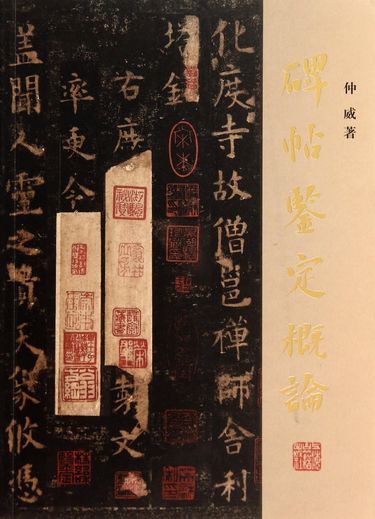 碑帖鑒定概論
仲威著
化度寺故僧邕禪師舍利
塔銘
右庶
製文
率更令
蓋聞人靈之貴天象攸憑